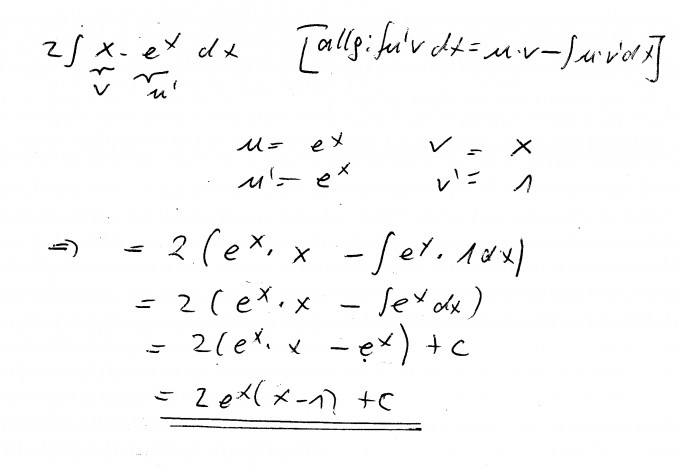 2∫ x · eˣ dx [allg: ∫u'v dx = u·v - ∫u·v'dx]
v u'
u = eˣ v = x
u' = eˣ v' = 1
⇒ = 2(eˣ · x - ∫eˣ · 1dx)
= 2(eˣ · x - ∫eˣ dx)
= 2(eˣ · x - eˣ) + c
= 2eˣ(x-1) + c